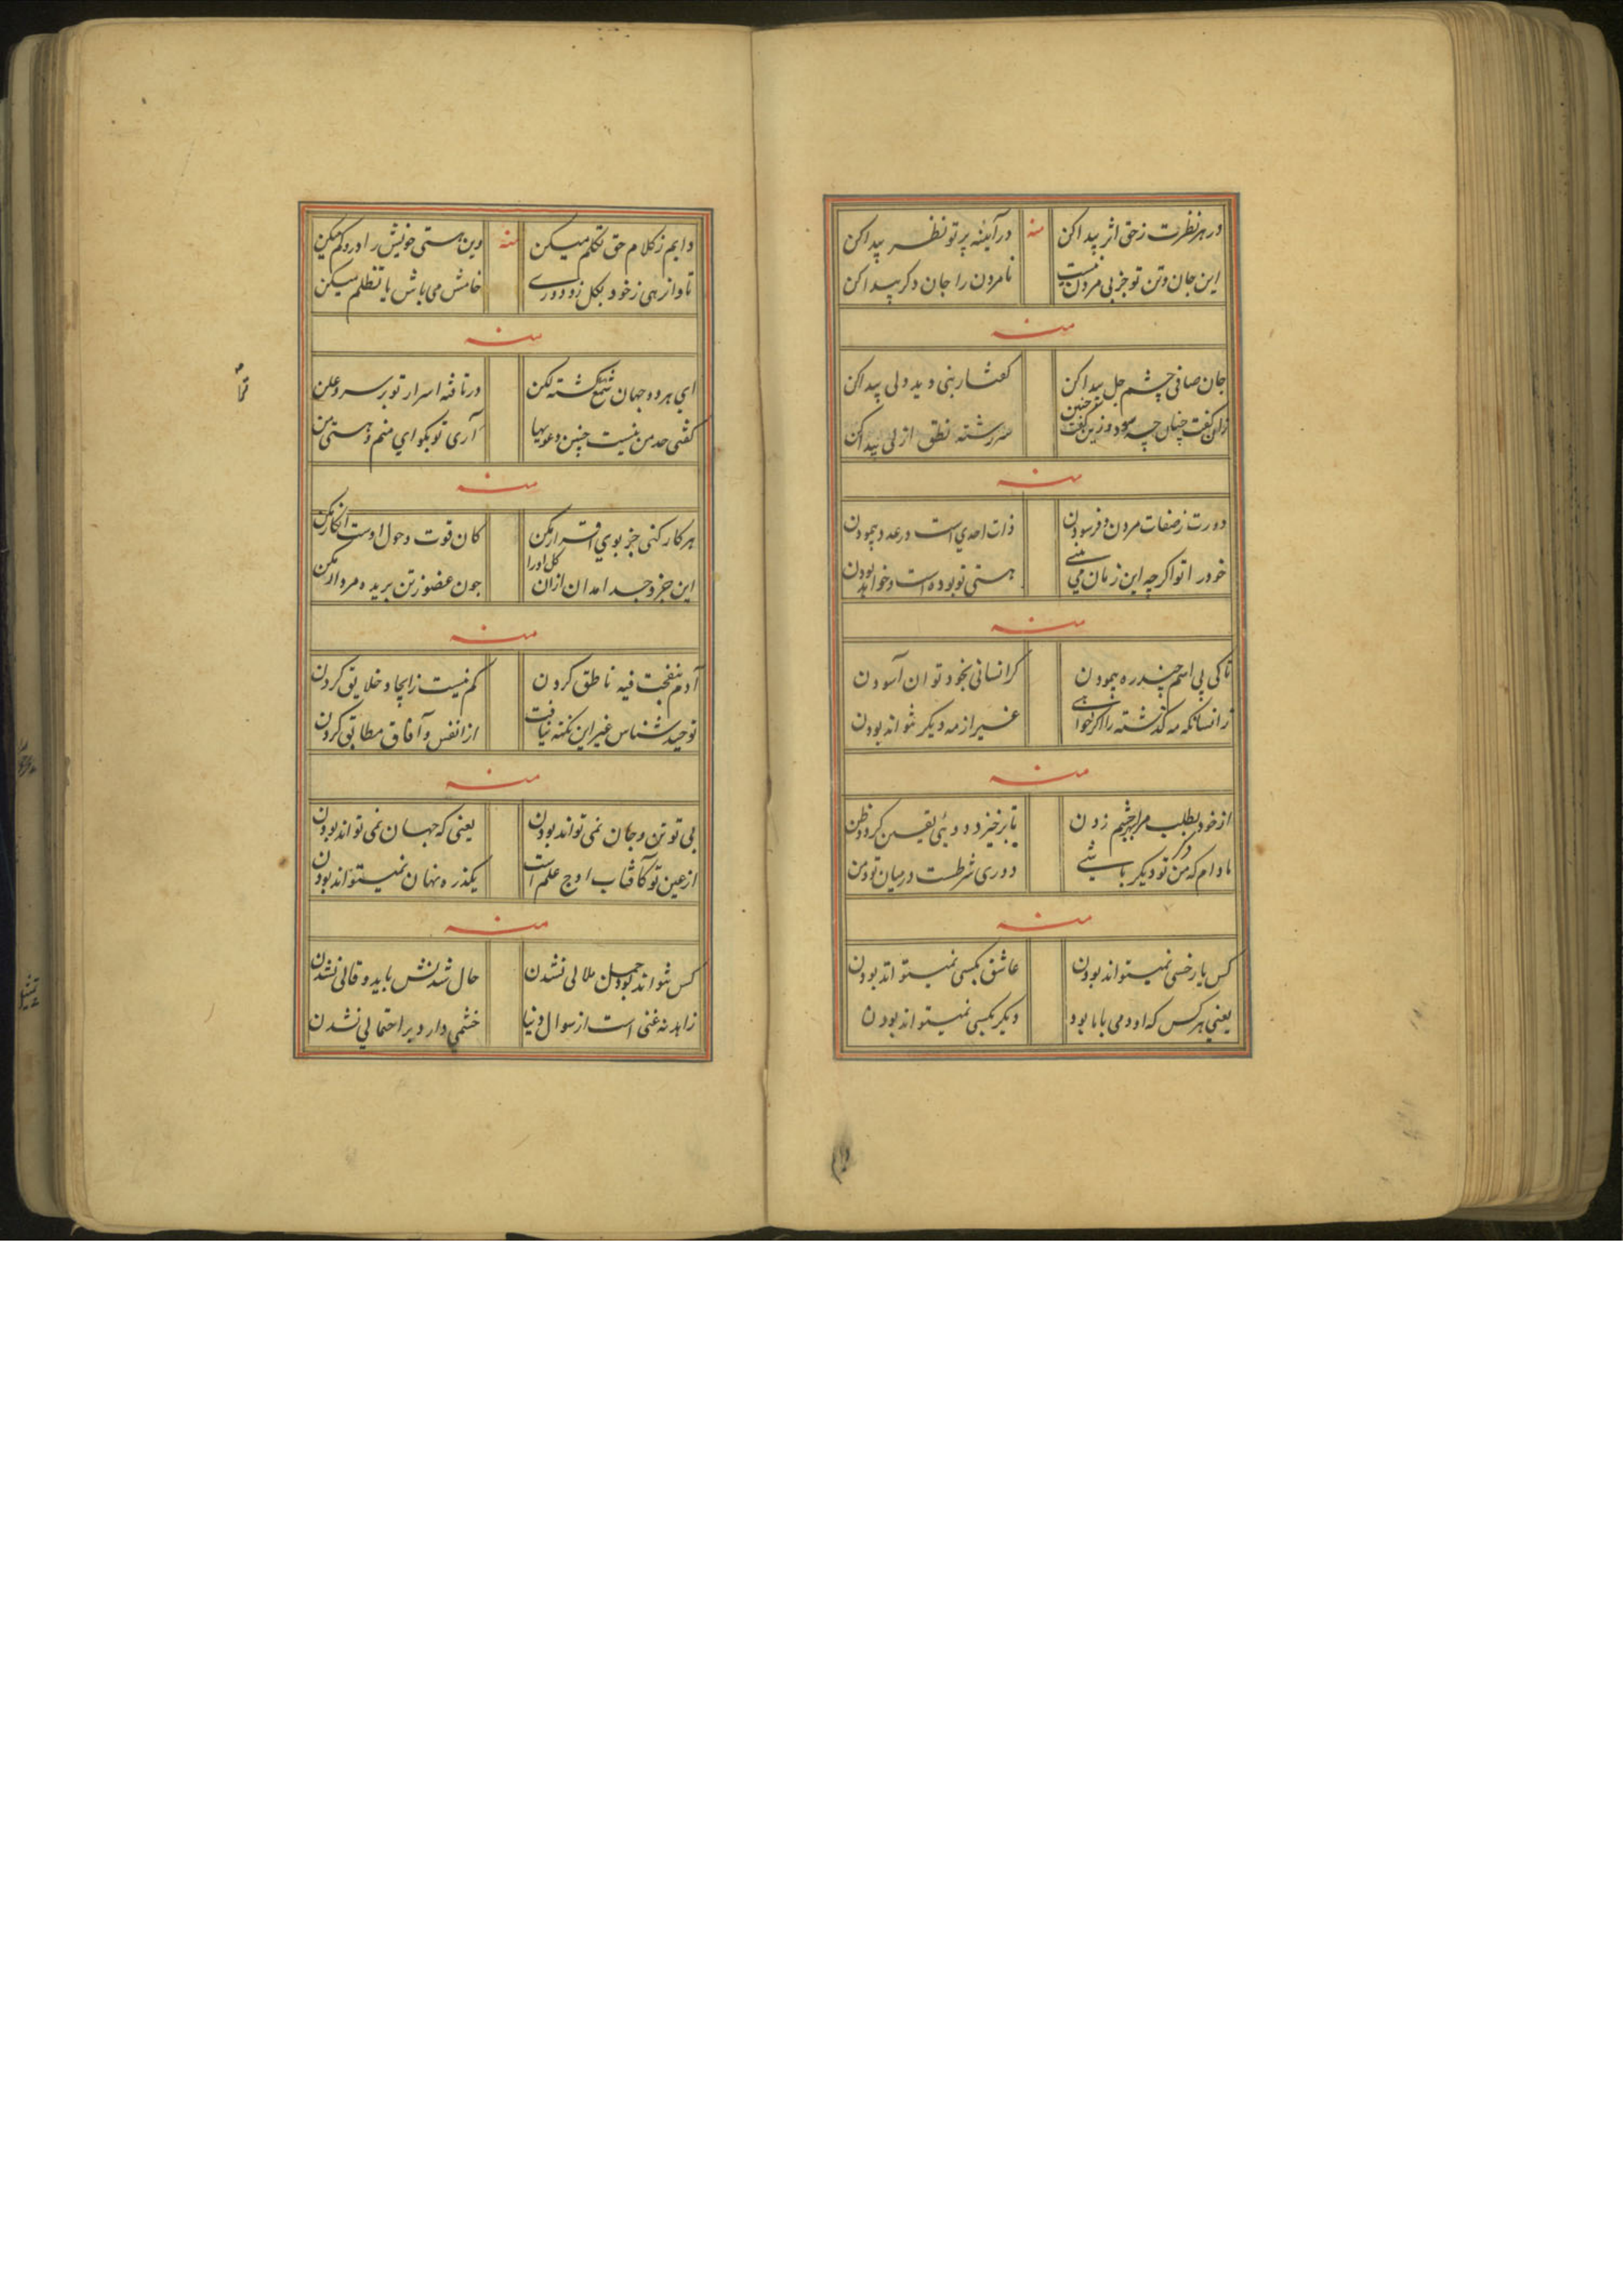 در هر نظرت ز حق اثر پیدا کن منه در آینه پرتو نظر پیدا کن
این جان و تن تو جز پی مردن نیست نامردن را جان دکر پیدا کن
منه
جان صافی چشم جل پیدا کن کفتار بنی و دید ولی پیدا کن
زان کفت چنان چه سود و زین کفت چنین سررشته نطق ازلی پیدا کن
منه
دورت ز صفات مردن و فرسودن ذات احدی است در عدد پیمودن
خود را تو اکرچه این زمان می بینی هستی تو بوده است و خواهد بودن
منه
تا کی پی اسم چند ره پیمودن کر انسانی بخود توان آسودن
زانسانکه مه کذشته را اکر خواهی غیر از مه دیکر نتواند بودن
منه
از خود بطلب مرا بهر چشم زدن تا برخیزد دوئی یقین کردد ظن
مادام که من تو دیکر باشی دوری شرطست درمیان تو و من
منه
کس یار خسی نمیتواند بودن عاشق بکسی نمیتواند بودن
یعنی هر کس که او دمی با ما بود دیکر بکسی نمیتواند بودن
دایم ز کلام حق تکلم میکن منه وین هستی خویش را درو کم میکن
تا واز هی ز خود بکل زو دوری خامش می باش یا تظلم میکن
منه
ای هر دو جهان شمع کشته لکن در تافته اسرار تو بر سر و علن
کفتی حد من نیست چنین دعویها آری تو بکو ای منم و هستی من
منه
هر کار کنی جز بوی اقرار مکن کان قوت و حول اوست انکار مکن
این جزو جدا مدان ازان کل اورا چون عضو ز تن بریده مردار مکن
منه
آدم بنفخت فیه ناطق کردن کم نیست ز ایجاد خلایق کردن
توحید شناس غیر این نکته نیافت از انفس و آفاق مطابق کردن
منه
بی تو تن و جان نمی تواند بودن یعنی که جهان نمی تواند بودن
از عین تو کافتاب اوج علم است یکذره نهان نمیتواند بودن
منه
کس نتواند بود جمل ملالی نشدن حال شدنش باید و قالی نشدن
زاهد نه غنی است از سوال دنیا خشمی دارد براحتمالی نشدن